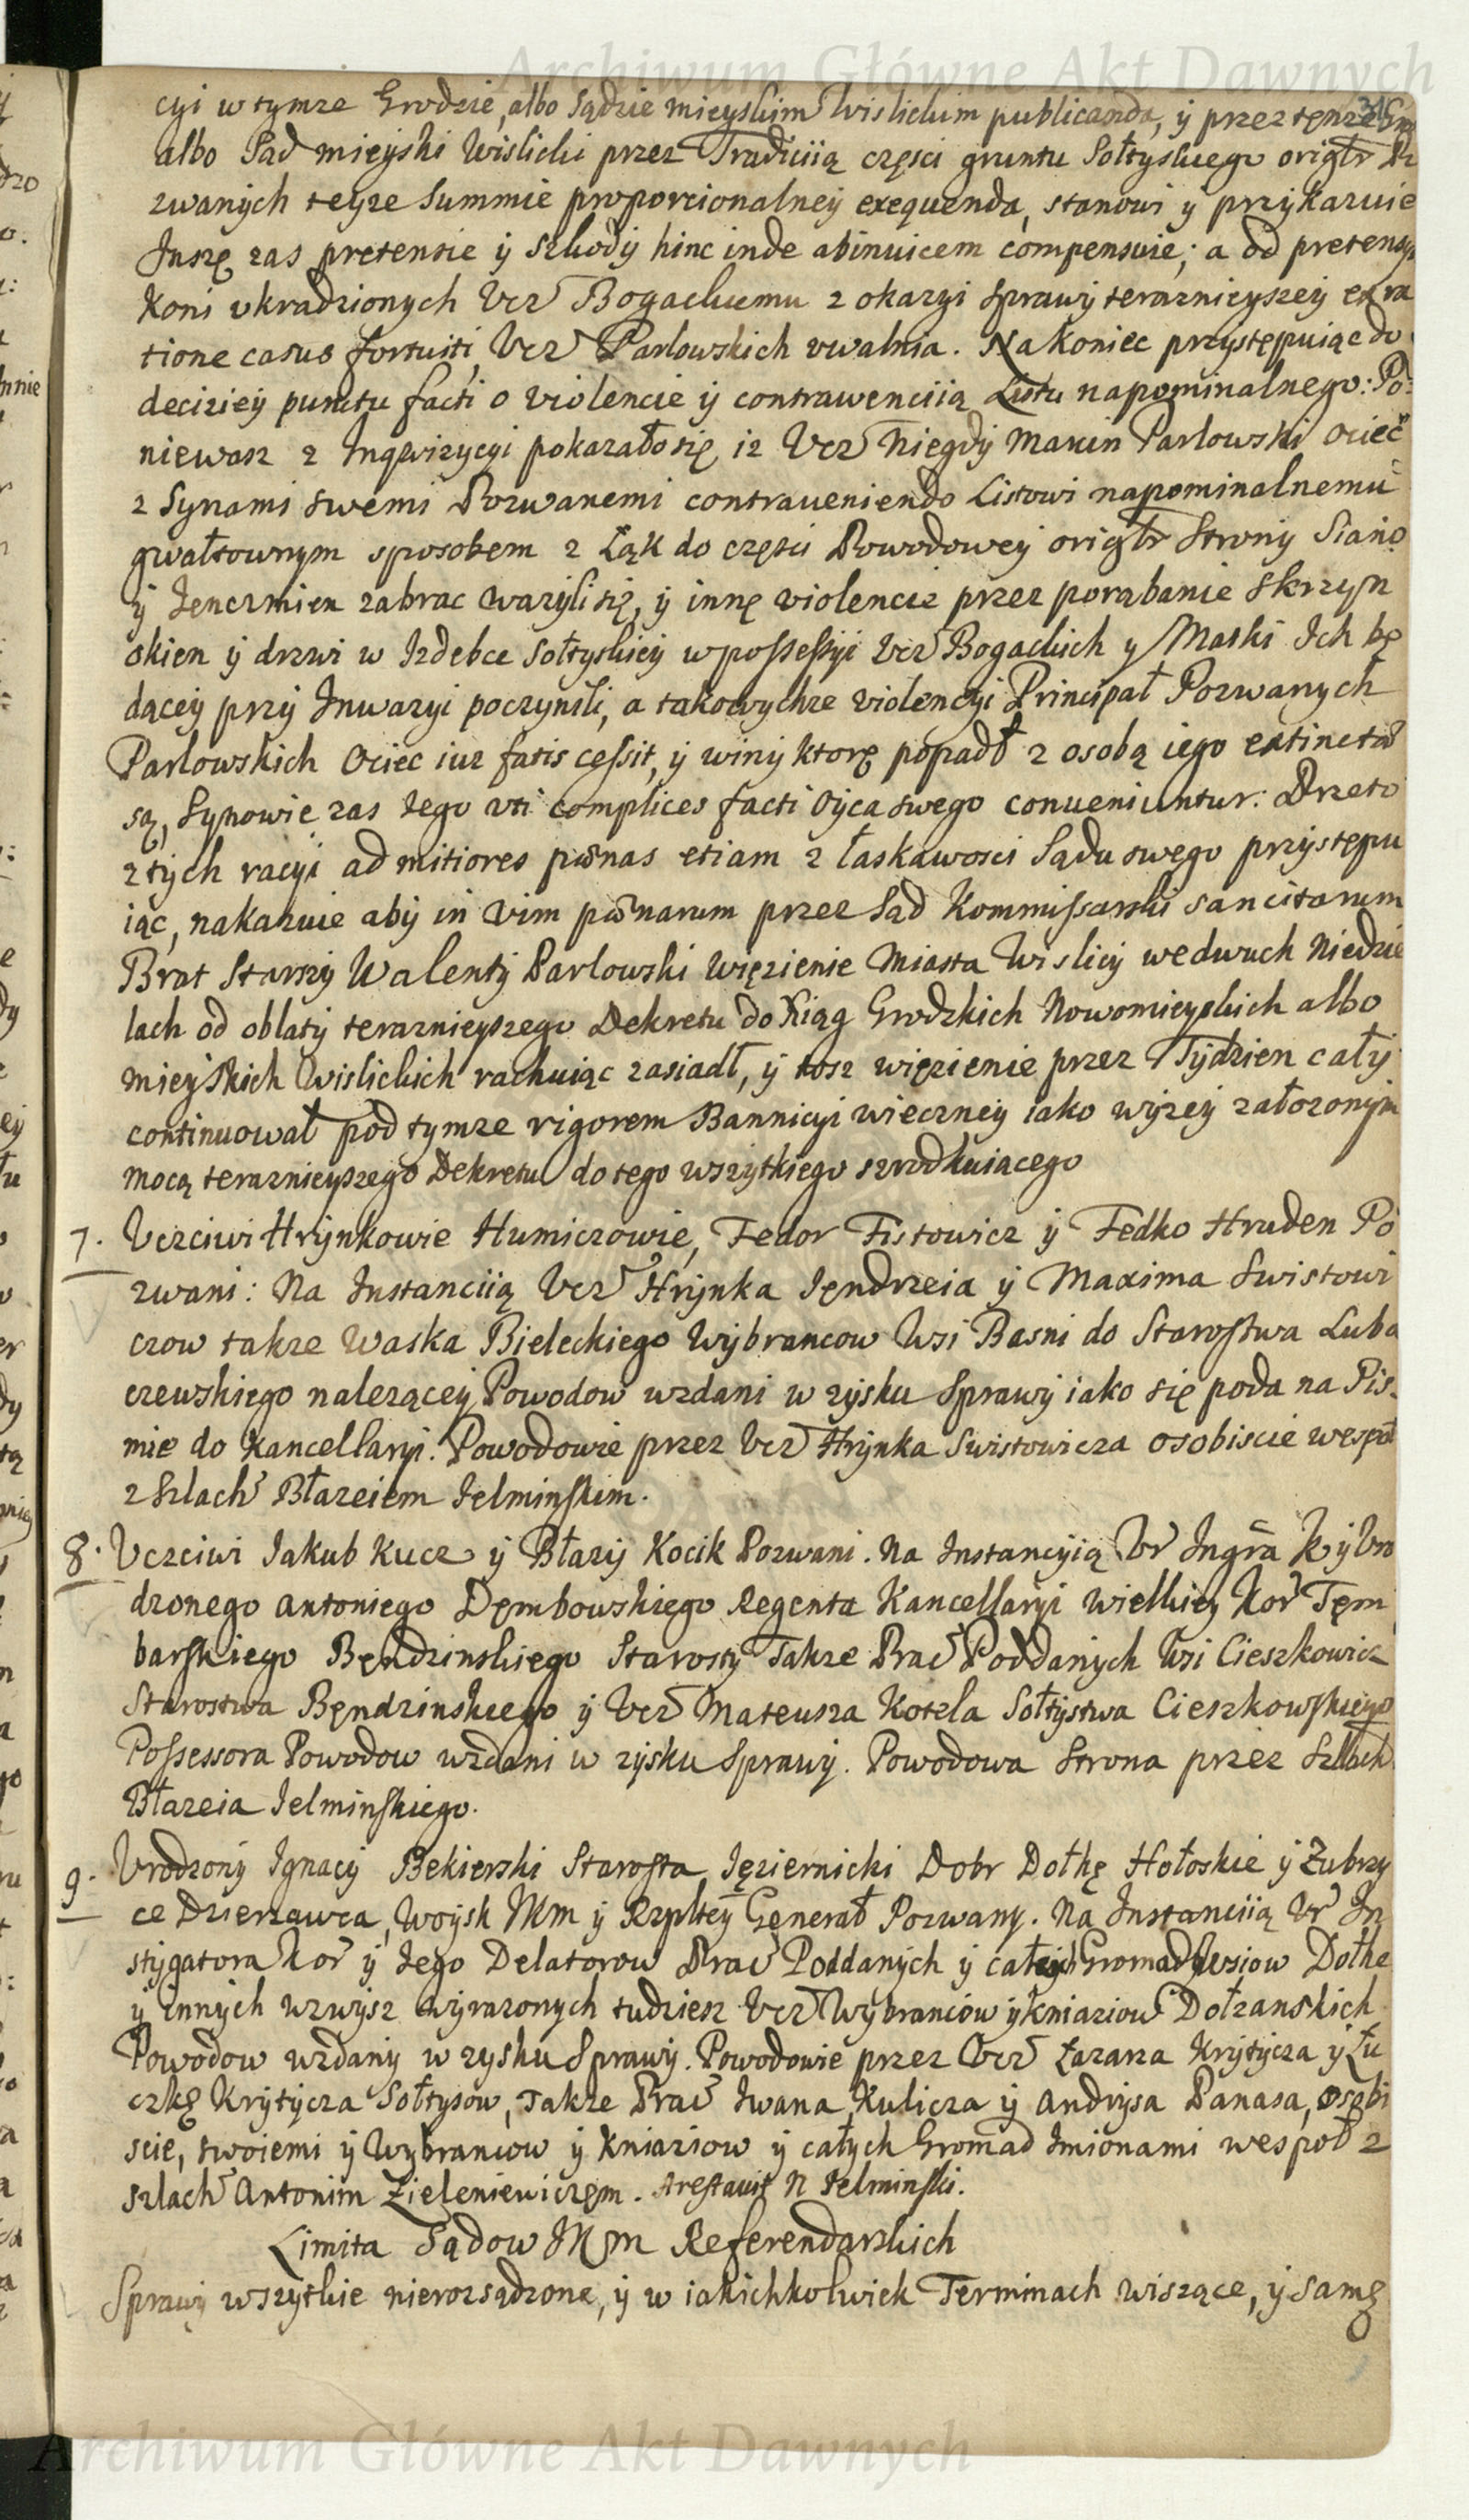 Archiwum Główne Akt Dawnych
cyi w tymze Grodzie, albo Sądzie mieyskim Wislickim publicanda, ÿ przez tenze
albo Sąd mieyski Wislicki przez Tradiciią częsci gruntu Sołtyskiego origłr Po
zwanych teyze Summie proporcionalney exequenda, stanowi ÿ przykazuie
Insze zas pretensie ÿ szkody hinc inde abinuicem compensuie; a od pretensyi
koni vkradzionych Ucz Bogackiemu z okazyi sprawy teraznieyszey ex ra
tione casus fortuiti, Ucz Parlowskich vwalnia. Nakoniec przystępuiąc do
deciziey punctu facti o violencie ÿ contrawenciią Listu napominalnego: Po=
niewasz z Inqwizycyi pokazało się, iz Ucz Niegdy Marcin Parlowski Ociec
z Synami swemi Pozwanemi contraueniendo Listowi napominalnemu
gwałtownym sposobem z Łąk do częsci Powodowey origłr Strony Siano
ÿ Ienczmien zabrac wazyli się, ÿ inne violencie przez porąbanie skrzyn
okien ÿ drzwi w Izdebce Sołtyskiey w possessyi Ucz Bogackich y Matki Ich bę
dącey przy Inwazyi poczynili, a takowychze violencyi Principał Pozwanych
Parlowskich Ociec iuz fatis cessit, ÿ winy ktorę popadł z osobą iego extinctæ
są, Synowie zas Iego vti complices facti Oyca swego conueniuntur: Przeto
z tych racyi ad mitiores pœnas etiam z łaskawosci Sądu swego przystępu
iąc, nakazuie aby in vim pœnarum przez Sąd Kommissarski sancitarum
Brat Starszy Walenty Parlowski Więzienie Miasta Wislicy we dwuch Niedzie
lach od oblaty teraznieyszego Dekretu do Xiąg Grodzkich Nowomieyskich albo
mieyskich Wislickich rachuiąc zasiadł, ÿ tosz więzienie przez Tydzien cały
continuował pod tymze rigorem Bannicyi wieczney iako wyzey załozonym
mocą teraznieyszego Dekretu do tego wszytkiego szrodkuiącego
7. Uczciwi Hrynkowie Humiczowie, Fedor Fistowicz ÿ Fedko Hruden Po
zwani: Na Instanciią Ucz Hrynka Iędrzeia ÿ Maxima Swistowi
czow takze Waska Bieleckiego Wybrancow Wsi Basni do Starostwa Luba
czewskiego nalezącey Powodow wzdani w zysku Sprawy iako się poda na Pis=
mie do Kancellaryi. Powodowie przez Ucz Hrynka Swistowicza osobiscie wespoł
z Szlach Błazeiem Ielminskim.
8. Uczciwi Iakub Kucz ÿ Błazy Kocik Pozwani. Na Instancyią Ur Ingra K ÿ Uro
dzonego Antoniego Dęmbowskiego Regenta Kancellaryi Wielkiey Kor Tęm
barskiego Bęndzinskiego Starosty Takze Prac Poddanych Wsi Cieszkowic
Starostwa Bęndzinskiego ÿ Ucz Mateusza Kotzla Sołtystwa Cieszkowskiego
Possessora Powodow wzdani w zysku Sprawy. Powodowa Strona przez Szlach
Błazeia Ielminskiego.
9. Urodzony Ignacy Bekierski Starosta Ięziernicki Dobr Dołhę Hołoskie ÿ Zubrzy
ce Dzierzawca, Woysk JKM ÿ Rzpltey Generał Pozwany. Na Instanciią Ur In
stygatora Kor ÿ Iego Delatorow Prac Poddanych ÿ całych Gromad Wsiow Dołhe
ÿ innych wzwysz wyrazonych tudziesz Ucz Wybrancow ÿ Kniaziow Dołzanskich
Powodow wzdany w zysku Sprawy. Powodowie przez Ucz Łazarza Krytycza ÿ Łu
czkę Krytycza Sołtysow, Takze Prac Iwana Kulicza ÿ Andrysa Panasa, osobi
scie, swoiemi ÿ Wybrancow ÿ Kniaziow ÿ całych Gromad Imionami wespoł z
szlach Antonim Zieleniewiczem. Arestauit N Ielminski.
Limita Sądow JKM Referendarskich
Sprawy wszytkie nierozsądzone, ÿ w iakichkolwiek Terminach wiszące, ÿ samę
Archiwum Główne Akt Dawnych